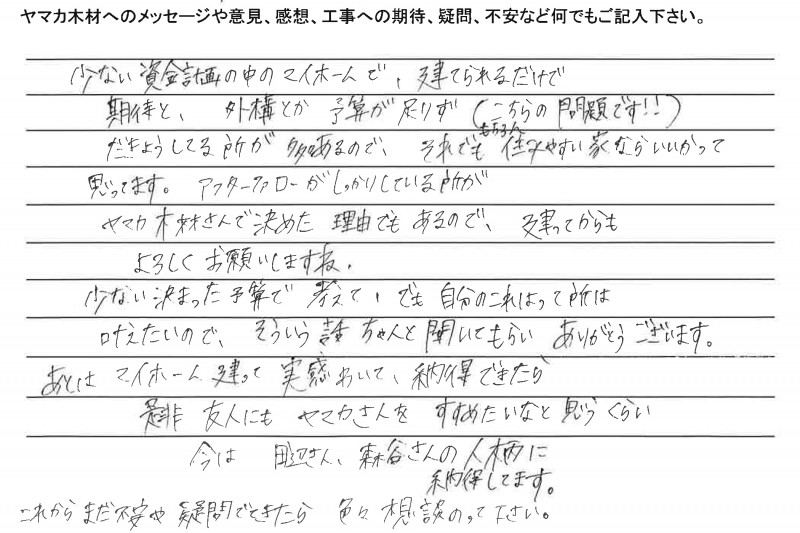 ヤマカ木材へのメッセージや意見、感想、工事への期待、疑問、不安など何でもご記入下さい。
少ない資金計画の中のマイホームで、建てられるだけで
期待と、外構とか予算が足りず(こちらの問題です!!)
だきょうしてる所が多々あるので、それでももちろん住みやすい家ならいいかって
思ってます。アフターフォローがしっかりしている所が
ヤマカ木材さんで決めた理由でもあるので、建ってからも
よろしくお願いしますね。
少ない決まった予算で考えて、でも自分のこれはって所は
叶えたいので、そういう話ちゃんと聞いてもらいありがとうございます。
あとはマイホーム建って実感わいて、納得できたら
是非友人にもヤマカさんをすすめたいなと思うくらい
今は田辺さん、森谷さんの人柄に
納得してます。
これからまだ不安や疑問でてきたら色々相談のって下さい。